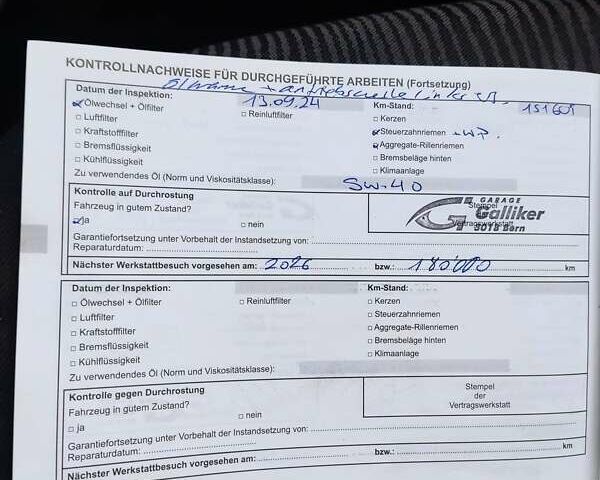 KONTROLLNACHWEISE FÜR DURCHGEFÜHRTE ARBEITEN (Fortsetzung)
Ölwanne + antriebswelle links
Datum der Inspektion: 13.09.24 Km-Stand:
☑ Ölwechsel + Ölfilter □ Reinluftfilter □ Kerzen
□ Luftfilter ☑ Steuerzahnriemen + WP.
□ Kraftstofffilter ☑ Aggregate-Rillenriemen
□ Bremsflüssigkeit □ Bremsbeläge hinten
□ Kühlflüssigkeit □ Klimaanlage
Zu verwendetes Öl (Norm und Viskositätsklasse): 5W-40
Kontrolle auf Durchrostung
Fahrzeug in gutem Zustand?
☑ ja □ nein
GARAGE
Galliker
3018 Bern
Stempel
Vertragswerkstatt
Garantiefortsetzung unter Vorbehalt der Instandsetzung von:
Reparaturdatum:
Nächster Werkstattbesuch vorgesehen am: 2026 bzw.: 180'000 km
Datum der Inspektion: Km-Stand:
□ Ölwechsel + Ölfilter □ Reinluftfilter □ Kerzen
□ Luftfilter □ Steuerzahnriemen
□ Kraftstofffilter □ Aggregate-Rillenriemen
□ Bremsflüssigkeit □ Bremsbeläge hinten
□ Kühlflüssigkeit □ Klimaanlage
Zu verwendetes Öl (Norm und Viskositätsklasse):
Kontrolle gegen Durchrostung
Fahrzeug in gutem Zustand?
□ ja □ nein
Stempel
der
Vertragswerkstatt
Garantiefortsetzung unter Vorbehalt der Instandsetzung von:
Reparaturdatum:
Nächster Werkstattbesuch vorgesehen am: bzw.: km